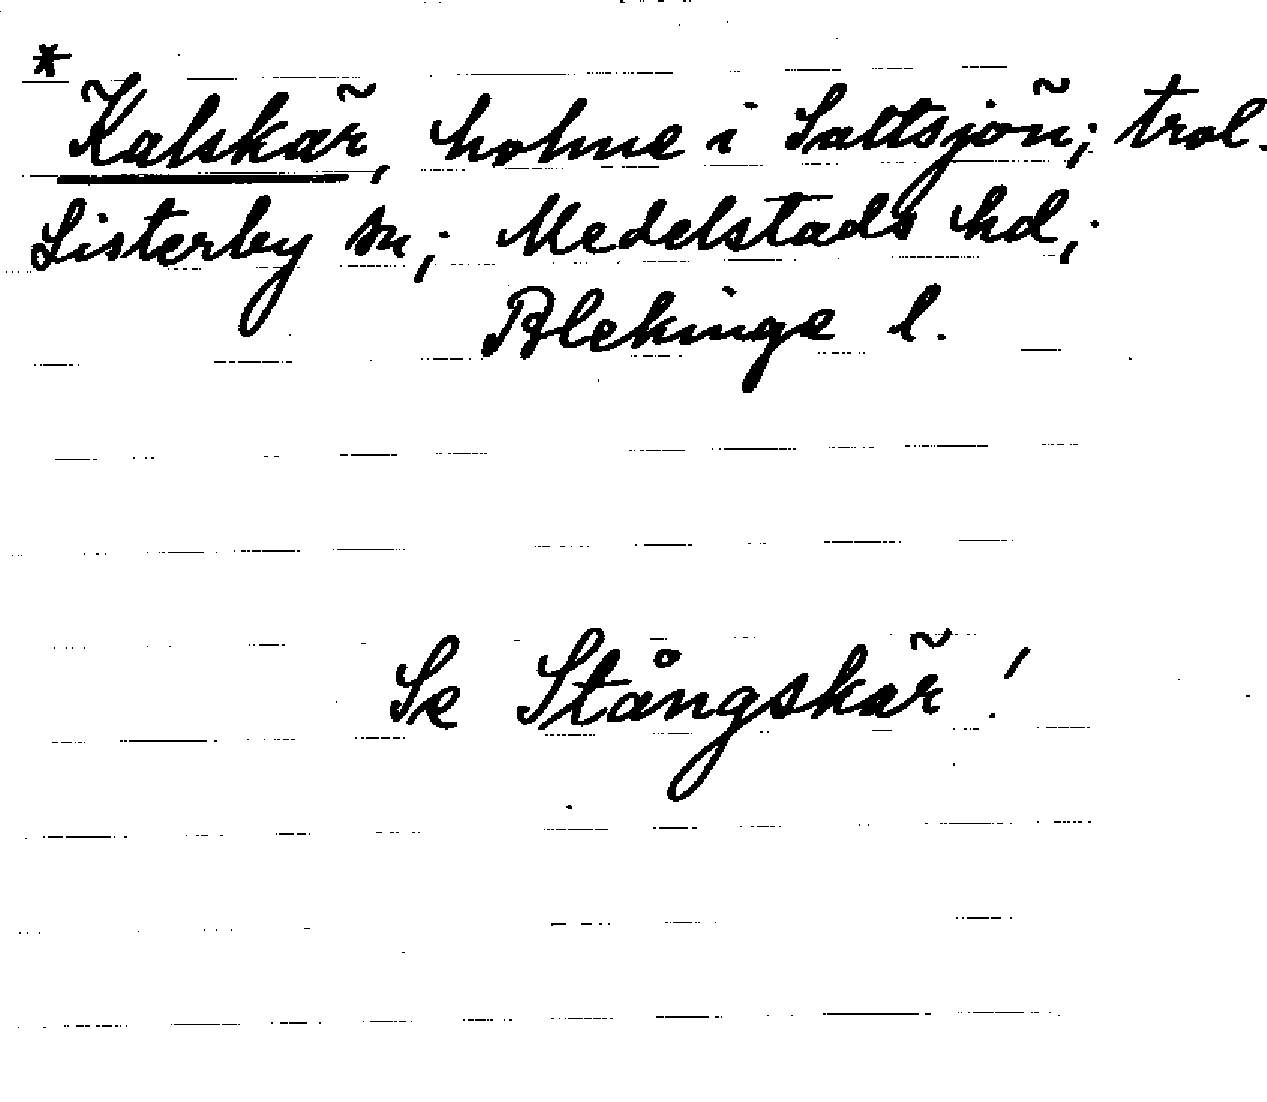 *
Kalskär, holme i Saltsjön; trol.
Listerby sn; Medelstads hd;
Blekinge l.
Se Stångskär!